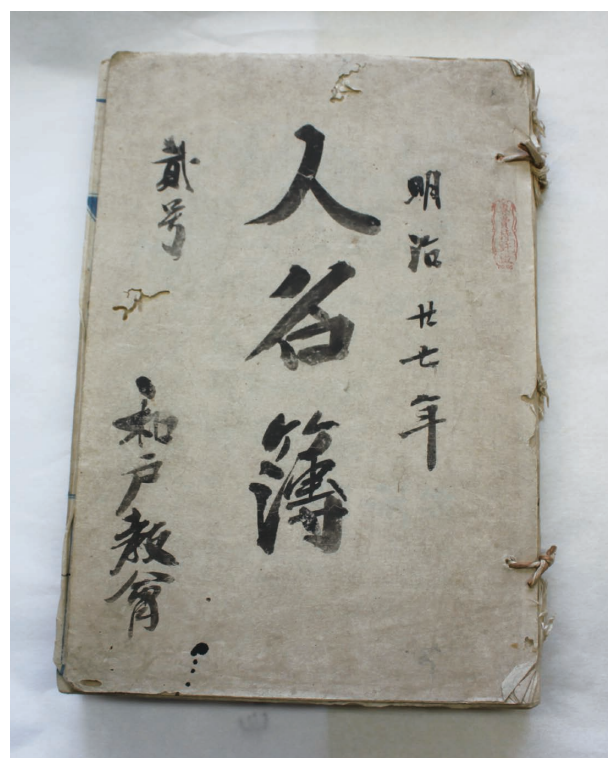 明治廿七年
人名簿
貳号
和戸教會